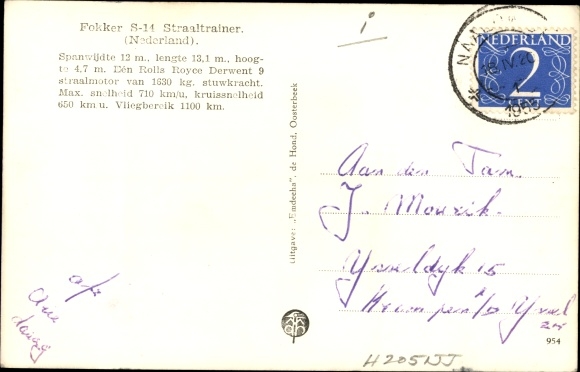 Fokker S-14 Straaltrainer.
(Nederland).
Spanwijdte 12 m., lengte 13,1 m., hoog-
te 4,7 m. Dén Rolls Royce Derwent 9
straalmotor van 1630 kg. stuwkracht.
Max. snelheid 710 km/u, kruissnelheid
650 km u. Vliegbereik 1100 km.
Uitgave: „Emdeeha", de Hond, Oosterbeek
NEDERLAND
2
CENT
Aan den Fam.
J. Mourik.
IJseldijk 15
a/d IJssel
afz
954
H205NJJ